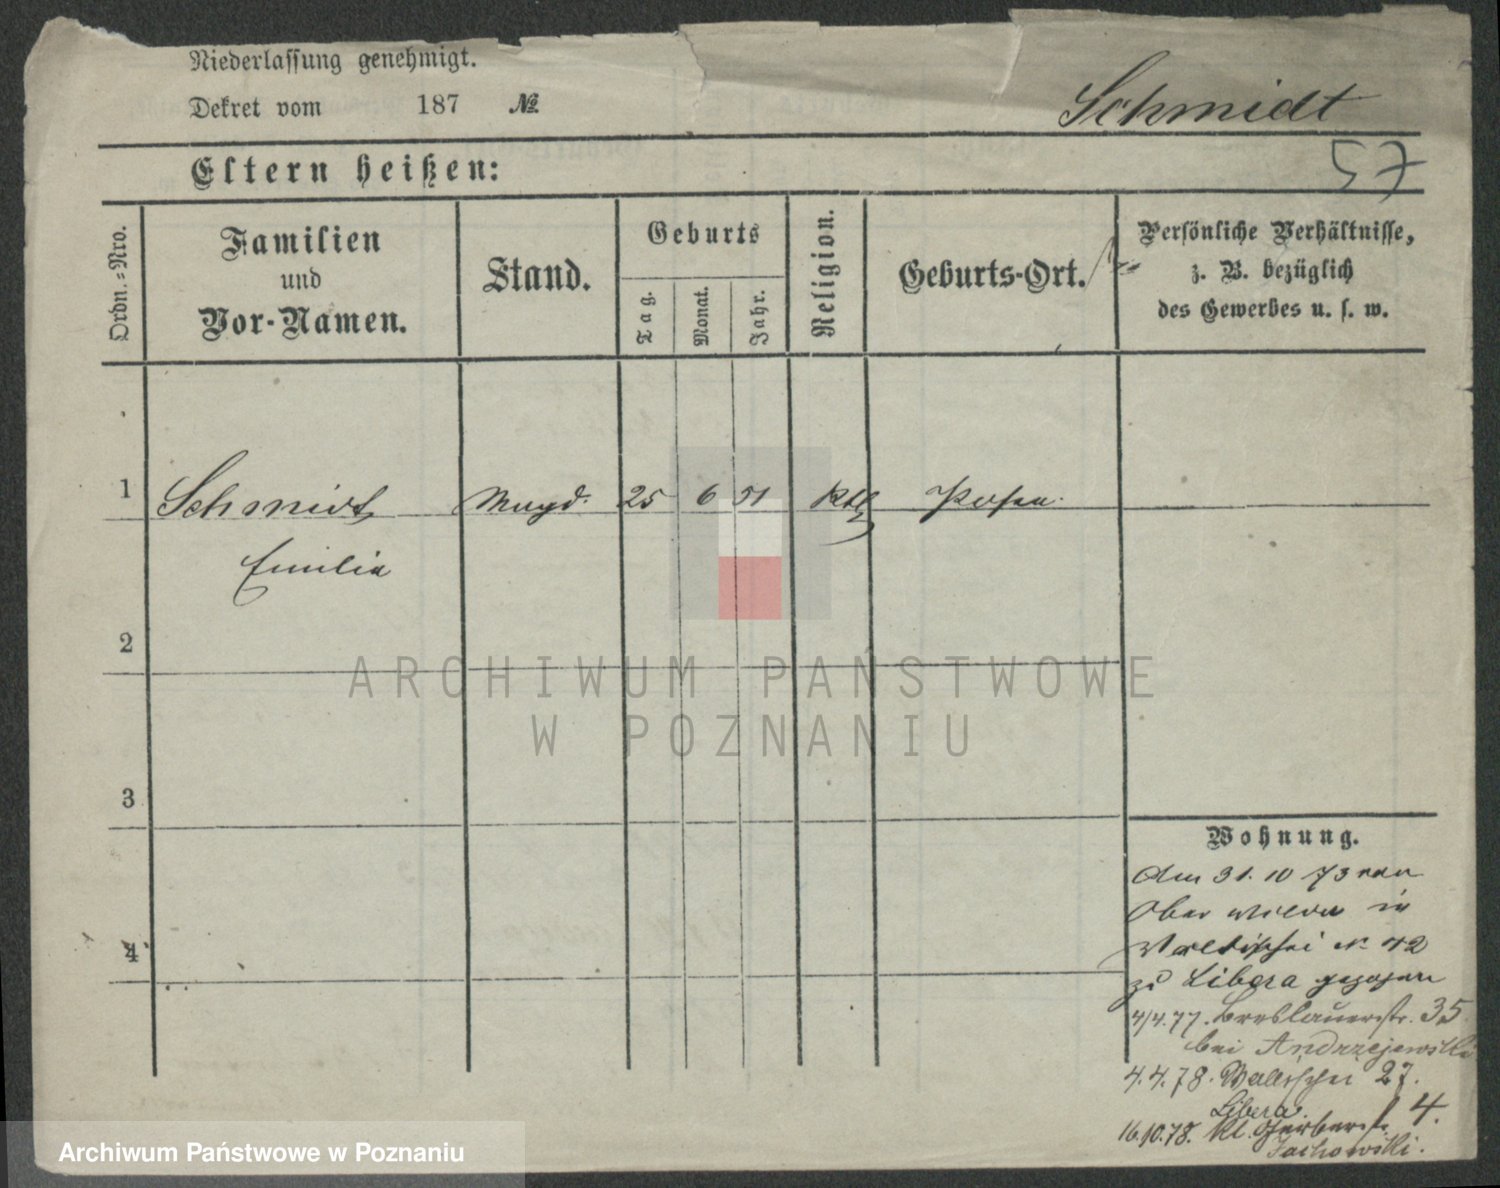 Niederlassung genehmigt.
Dekret vom 187 №
Schmidt
57
Eltern heißen:
Ordn.-Nro.
Familien
und
Vor-Namen.
Stand.
Geburts
Tag.
Monat.
Jahr.
Religion.
Geburts-Ort.
Persönliche Verhältnisse,
z. B. bezüglich
des Gewerbes u. s. w.
1 Schmidt Magd. 25 6 51 Kth Posen.
Emilia
2
3
4
ARCHIWUM PAŃSTWOWE
W POZNANIU
Wohnung.
Am 31. 10 73 von
Ober Wilda in
Wallischei N. 42
zu Libera gezogen
4/4.77. Breslauerstr. 35
bei Andrzejewski
4.4.78. Wallischei 27.
Libera.
16.10.78. Kl. Gerberstr. 4.
Jachowski.
Archiwum Państwowe w Poznaniu